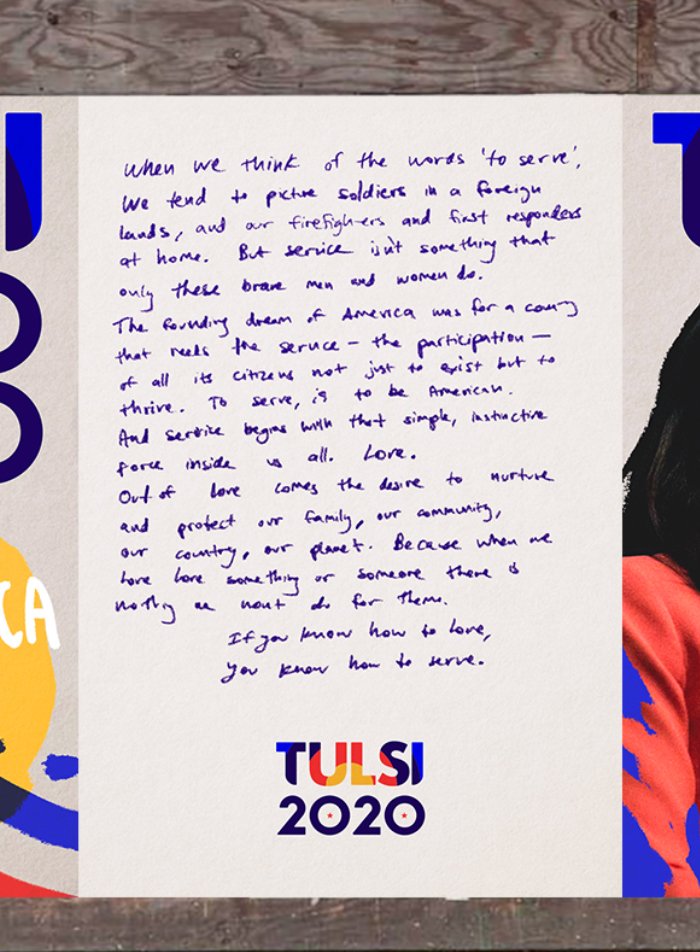 When we think of the words 'to serve',
We tend to picture soldiers in a foreign
lands, and our firefighters and first responders
at home. But service isn't something that
only these brave men and women do.
The founding dream of America was for a country
that needs the service – the participation –
of all its citizens not just to exist but to
thrive. To serve, is to be American.
And service begins with that simple, instinctive
force inside us all. Love.
Out of love comes the desire to nurture
and protect our family, our community,
our country, our planet. Because when we
love something or someone there is
nothing we wont do for them.
If you know how to love,
you know how to serve.
TULSI
2020
CA